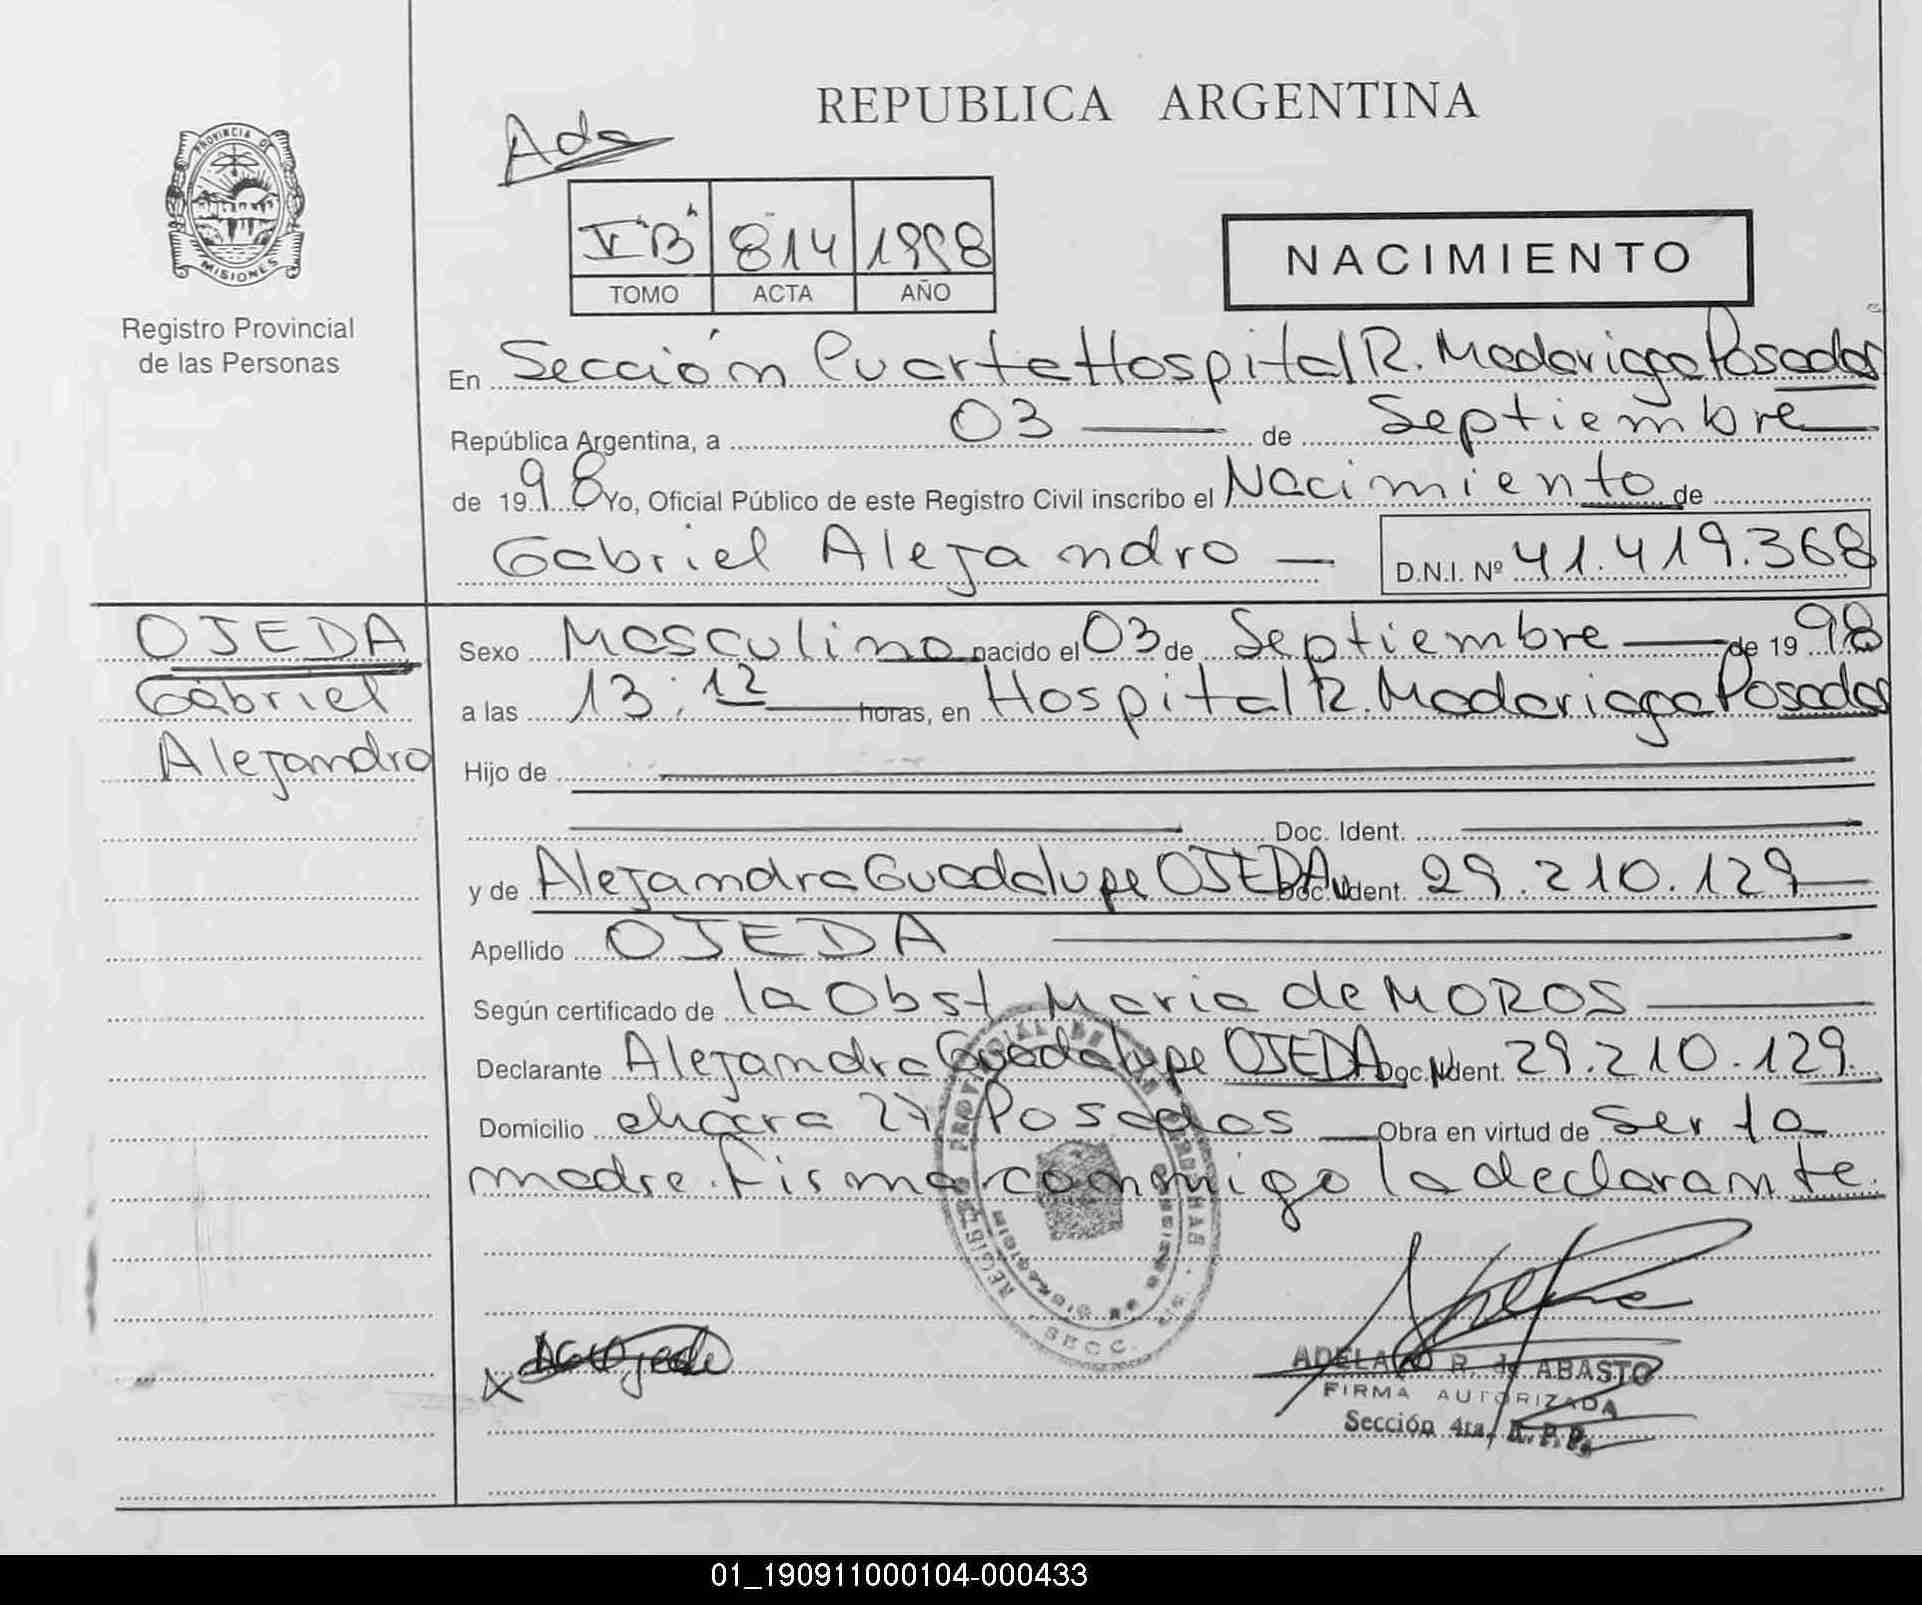 REPUBLICA ARGENTINA
Ada
PROVINCIA DE
MISIONES
Registro Provincial
de las Personas
V "B" 814 1998
TOMO ACTA AÑO
NACIMIENTO
En Sección Cuarta Hospital R. Madariaga Posadas
República Argentina, a 03 de Septiembre
de 1998 Yo, Oficial Público de este Registro Civil inscribo el Nacimiento de
Gabriel Alejandro D.N.I. Nº 41.419.368
OJEDA
Gabriel
Alejandro
Sexo Masculino nacido el 03 de Septiembre de 1998
a las 13:12 horas, en Hospital R. Madariaga Posadas
Hijo de
Doc. Ident.
y de Alejandra Guadalupe OJEDA Doc. Ident. 29.210.129
Apellido OJEDA
Según certificado de la Obst María de MOROS
Declarante Alejandra Guadalupe OJEDA Doc. Ident. 29.210.129.
Domicilio chacra 27 Posadas Obra en virtud de ser la
madre. Firma conmigo la declarante.
X Ojeda
R. de ABASTO
FIRMA AUTORIZADA
Sección 4ta. R. P. P.
SECC.
01_190911000104-000433